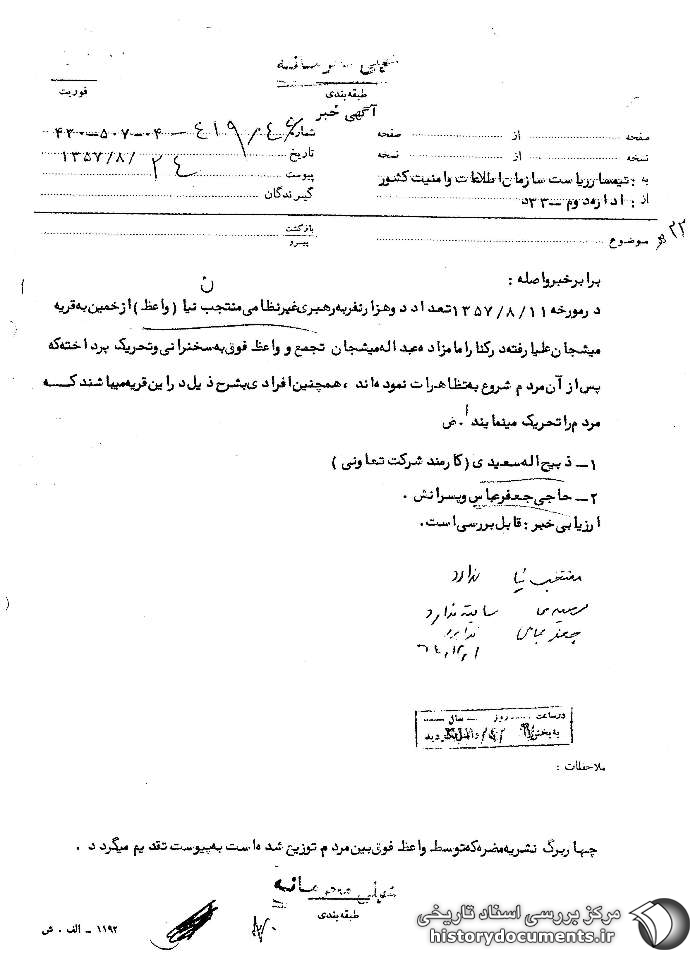 خیلی محرمانه
طبقه‌بندی
فوریت
آگهی خبر
صفحه از صفحه شماره ۴۱۹/۴۴-۴-۵۰۷-۴۳۰
نسخه از نسخه تاریخ ۲۴/۸/۱۳۵۷
به : تیمسار ریاست سازمان اطلاعات و امنیت کشور پیوست
از : اداره دوم - ۳۳د گیرندگان
موضوع بازگشت
پیرو
۲۲
برابر خبر واصله :
در مورخه ۱۳۵۷/۸/۱۱ تعداد دو هزار نفر به رهبری غیر نظامی منتجب نیا (واعظ) از خمین به قریه
میشجان علیا رفته در کنار امامزاده عبداله میشجان تجمع و واعظ فوق به سخنرانی و تحریک پرداخته که
پس از آن مردم شروع به تظاهرات نموده اند ، همچنین افرادی بشرح ذیل در این قریه میباشند کــه
مردم را تحریک مینمایند . ض
۱- ذبیح اله سعیدی (کارمند شرکت تعاونی)
۲- حاجی جعفر عباس و پسرانش .
ارزیابی خبر : قابل بررسی است .
منتخب نیا ندارد
سابقه ندارد
جعفر عباس ندارد
در ساعت روز سال
به بخش وارد گردید
ملاحظات :
چهار برگ نشریه مضره که توسط واعظ فوق بین مردم توزیع شده است به پیوست تقدیم میگردد .
خیلی محرمانه
طبقه‌بندی
۱۱۹۲ - الف . ش
مرکز بررسی اسناد تاریخی
historydocuments.ir